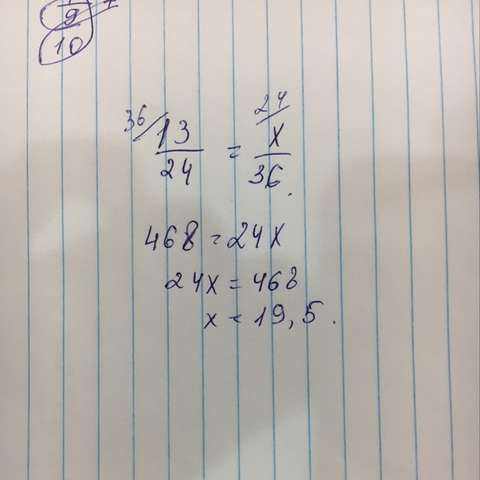 9
10
36/ 13/24 = 24/ x/36.
468 = 24x
24x = 468
x = 19,5.